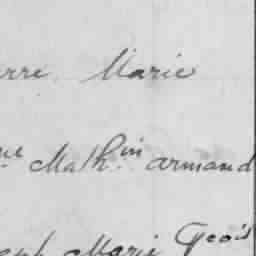 rre Marie
ne Math.in armand
eph Marie Gcois